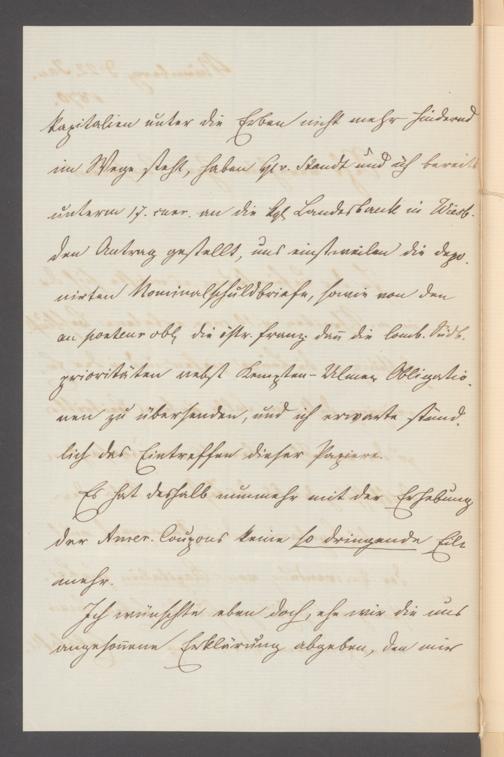 Kapitalien unter die Erben nicht mehr hindernd
im Wege steht, haben Hr. Standt und ich bereits
unterm 17. curr. an die kgl. Landesbank in Wiesb.
den Antrag gestellt, uns einstweilen die depo-
nirten Nominalschuldbriefe, sowie von den
au porteur obl. die östr. franz. dañ die lomb. Südb.
prioritäten nebst Kempten-Ulmer Obligatio-
nen zu übersenden, und ich erwarte stünd-
lich das Eintreffen dieser Papiere.
Es hat deshalb nunmehr mit der Erhebung
der Amer. Coupons keine so dringende Eile
mehr.
Ich wünschte eben doch, ehe wir die uns
angesoñene Erklärung abgeben, den mir